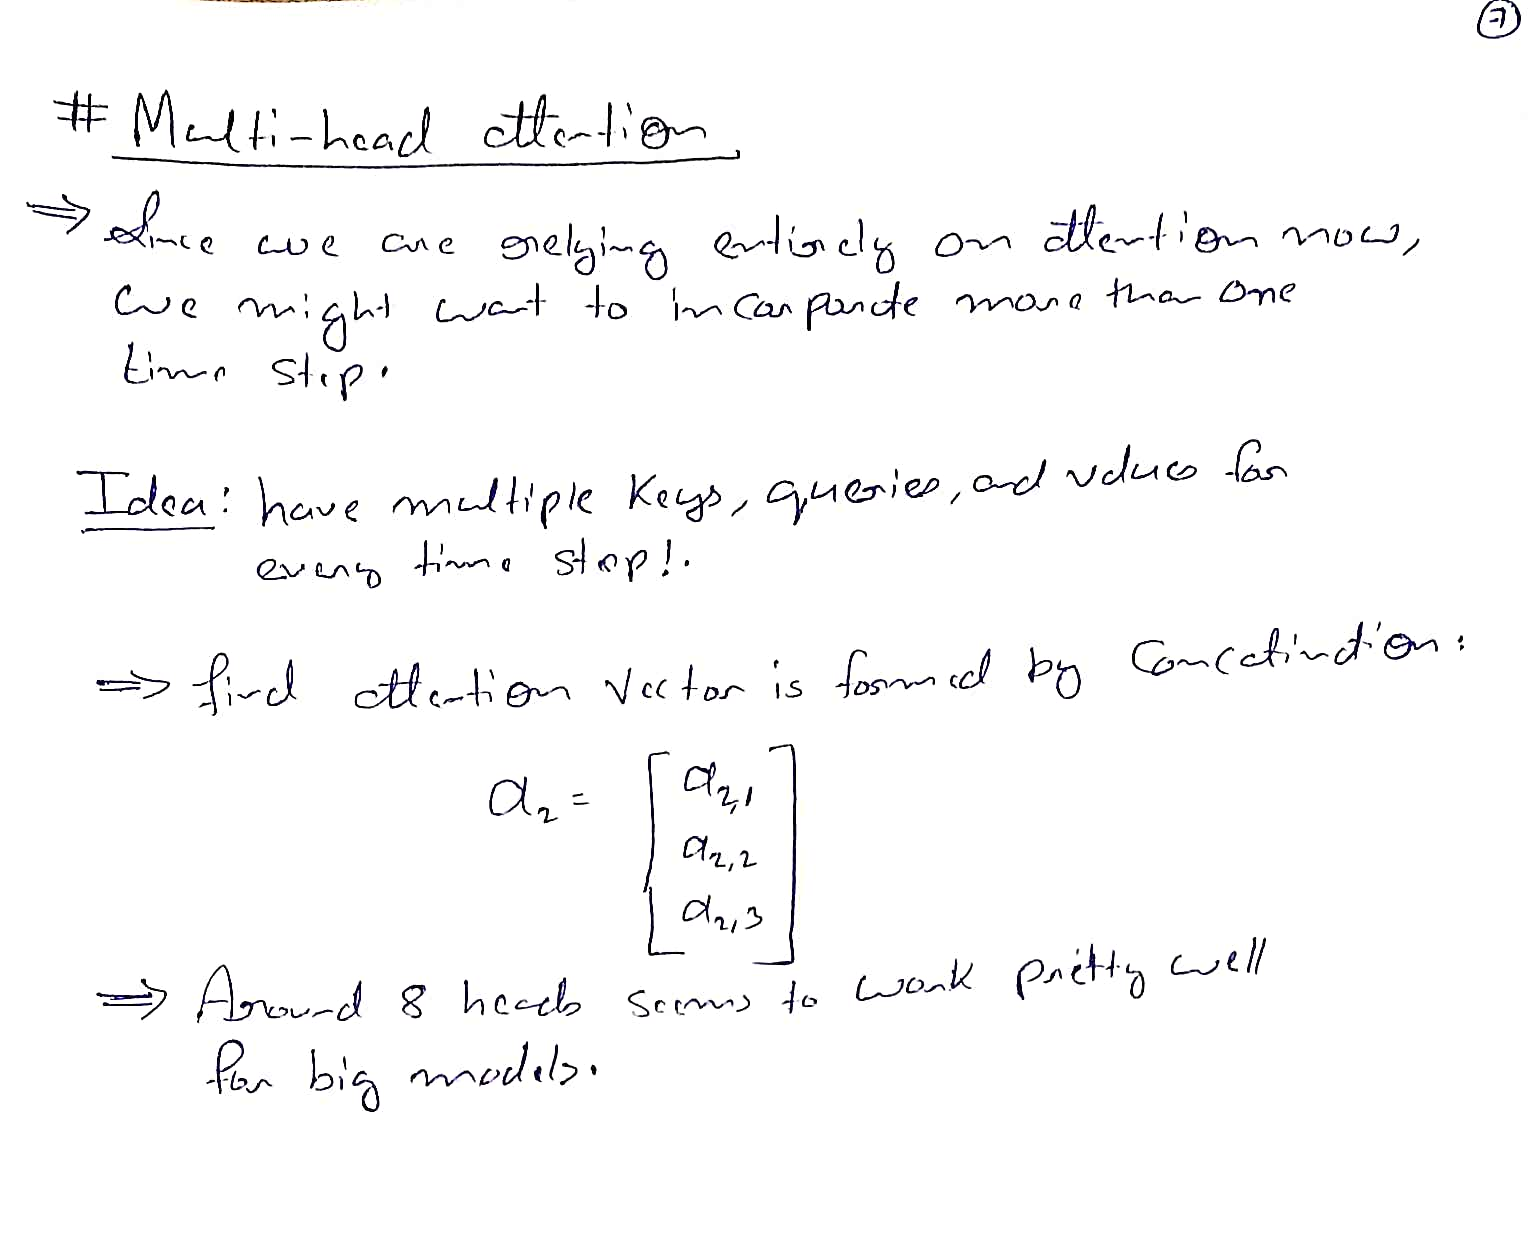 7
# Multi-head attention
⇒ Since we are relying entirely on attention now,
we might want to incorporate more than one
time step.
Idea: have multiple keys, queries, and values for
every time step!.
⇒ final attention vector is formed by concatination:
a₂ = [ a₂,₁
a₂,₂
a₂,₃ ]
⇒ Around 8 heads seems to work pretty well
for big models.